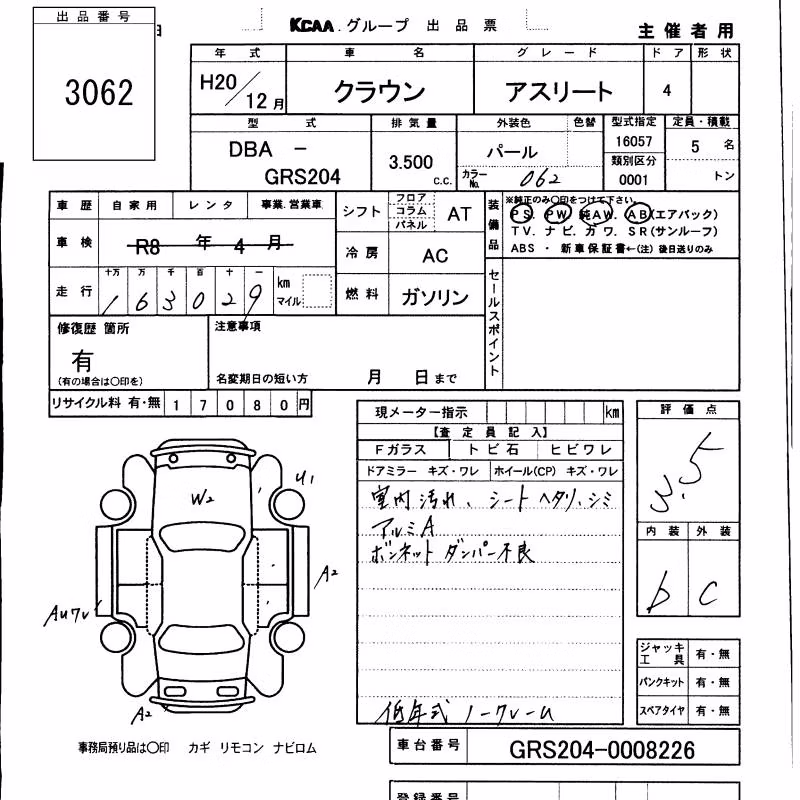 出品番号
3062
KCAA.グループ 出品票
主催者用
年式 車名 グレード ドア 形状
H20/12月 クラウン アスリート 4
型式 排気量 外装色 色替 型式指定 定員・積載
DBA － GRS204 3.500 c.c. パール 16057 5 名
カラーNo. 062 類別区分 0001 トン
車歴 自家用 レンタ 事業.営業車
車検 R8 年 4 月
シフト フロア コラム パネル AT
冷房 AC
燃料 ガソリン
装備品 ※純正のみ〇印をつけて下さい。
PS. PW. 純AW. AB(エアバック)
TV. ナビ. カワ. SR(サンルーフ)
ABS ・ 新車保証書←(注) 後日送りのみ
走行 十万 万 千 百 十 一
163029 km マイル
セールスポイント
修復歴 箇所
有
(有の場合は〇印を)
注意事項
名変期日の短い方 月 日まで
リサイクル料 有・無 17080円
現メーター指示 km
【査定員記入】
Fガラス トビ石 ヒビワレ
ドアミラー キズ・ワレ ホイール(CP) キズ・ワレ
室内汚れ、シートヘタリ、シミ
アルミA
ボンネットダンパー不良
低年式 ノークレーム
評価点
3.5
内装 外装
b C
ジャッキ 工具 有・無
パンクキット 有・無
スペアタイヤ 有・無
U1
W2
A2
A2
事務局預り品は〇印 カギ リモコン ナビロム
車台番号 GRS204-0008226
登録番号